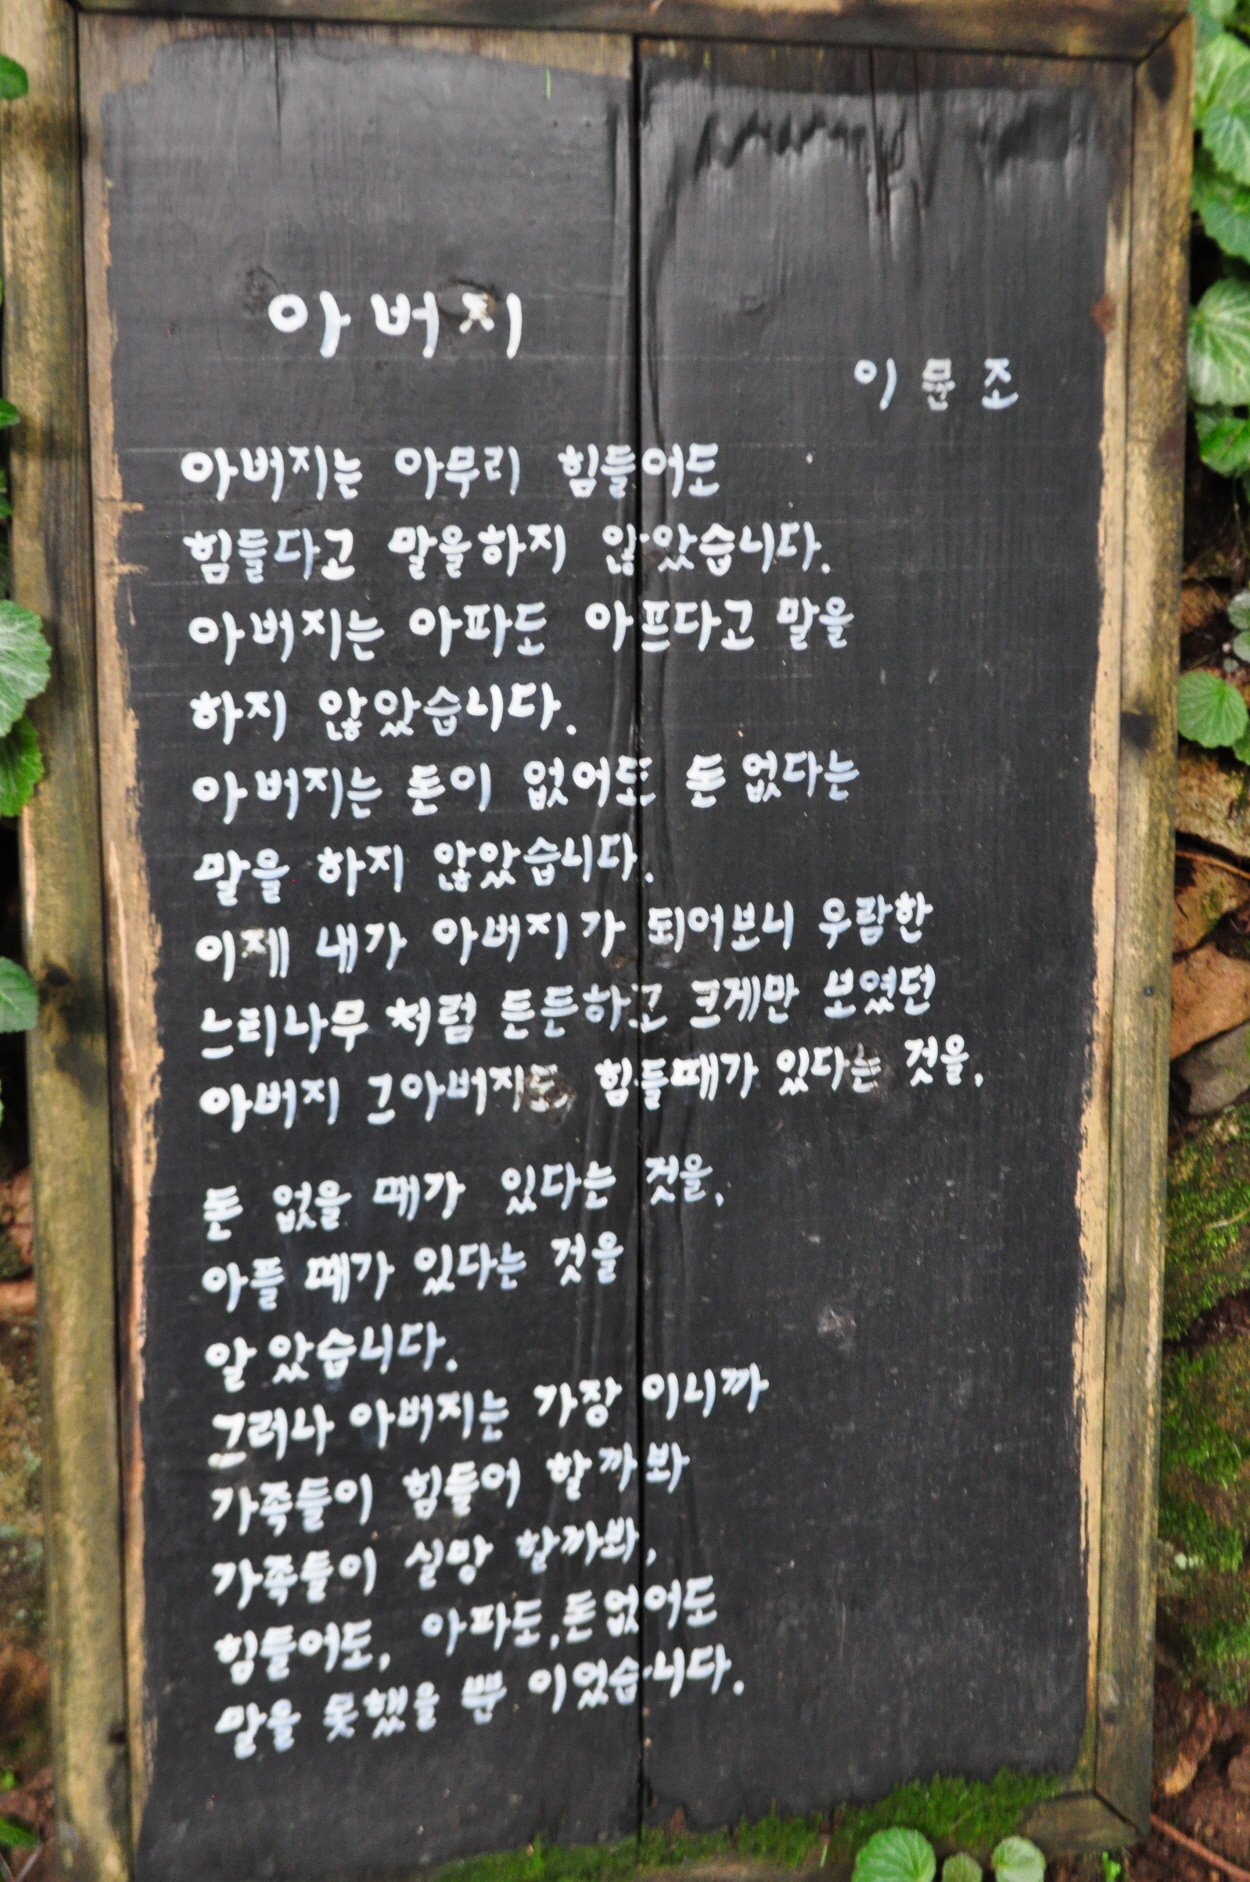 아버지
이문조
아버지는 아무리 힘들어도
힘들다고 말을하지 않았습니다.
아버지는 아파도 아프다고 말을
하지 않았습니다.
아버지는 돈이 없어도 돈 없다는
말을 하지 않았습니다.
이제 내가 아버지가 되어보니 우람한
느티나무처럼 든든하고 크게만 보였던
아버지 그아버지도 힘들때가 있다는 것을,
돈 없을 때가 있다는 것을,
아플 때가 있다는 것을
알았습니다.
그러나 아버지는 가장 이니까
가족들이 힘들어 할까봐
가족들이 실망 할까봐,
힘들어도, 아파도,돈없어도
말을 못했을 뿐 이었습니다.